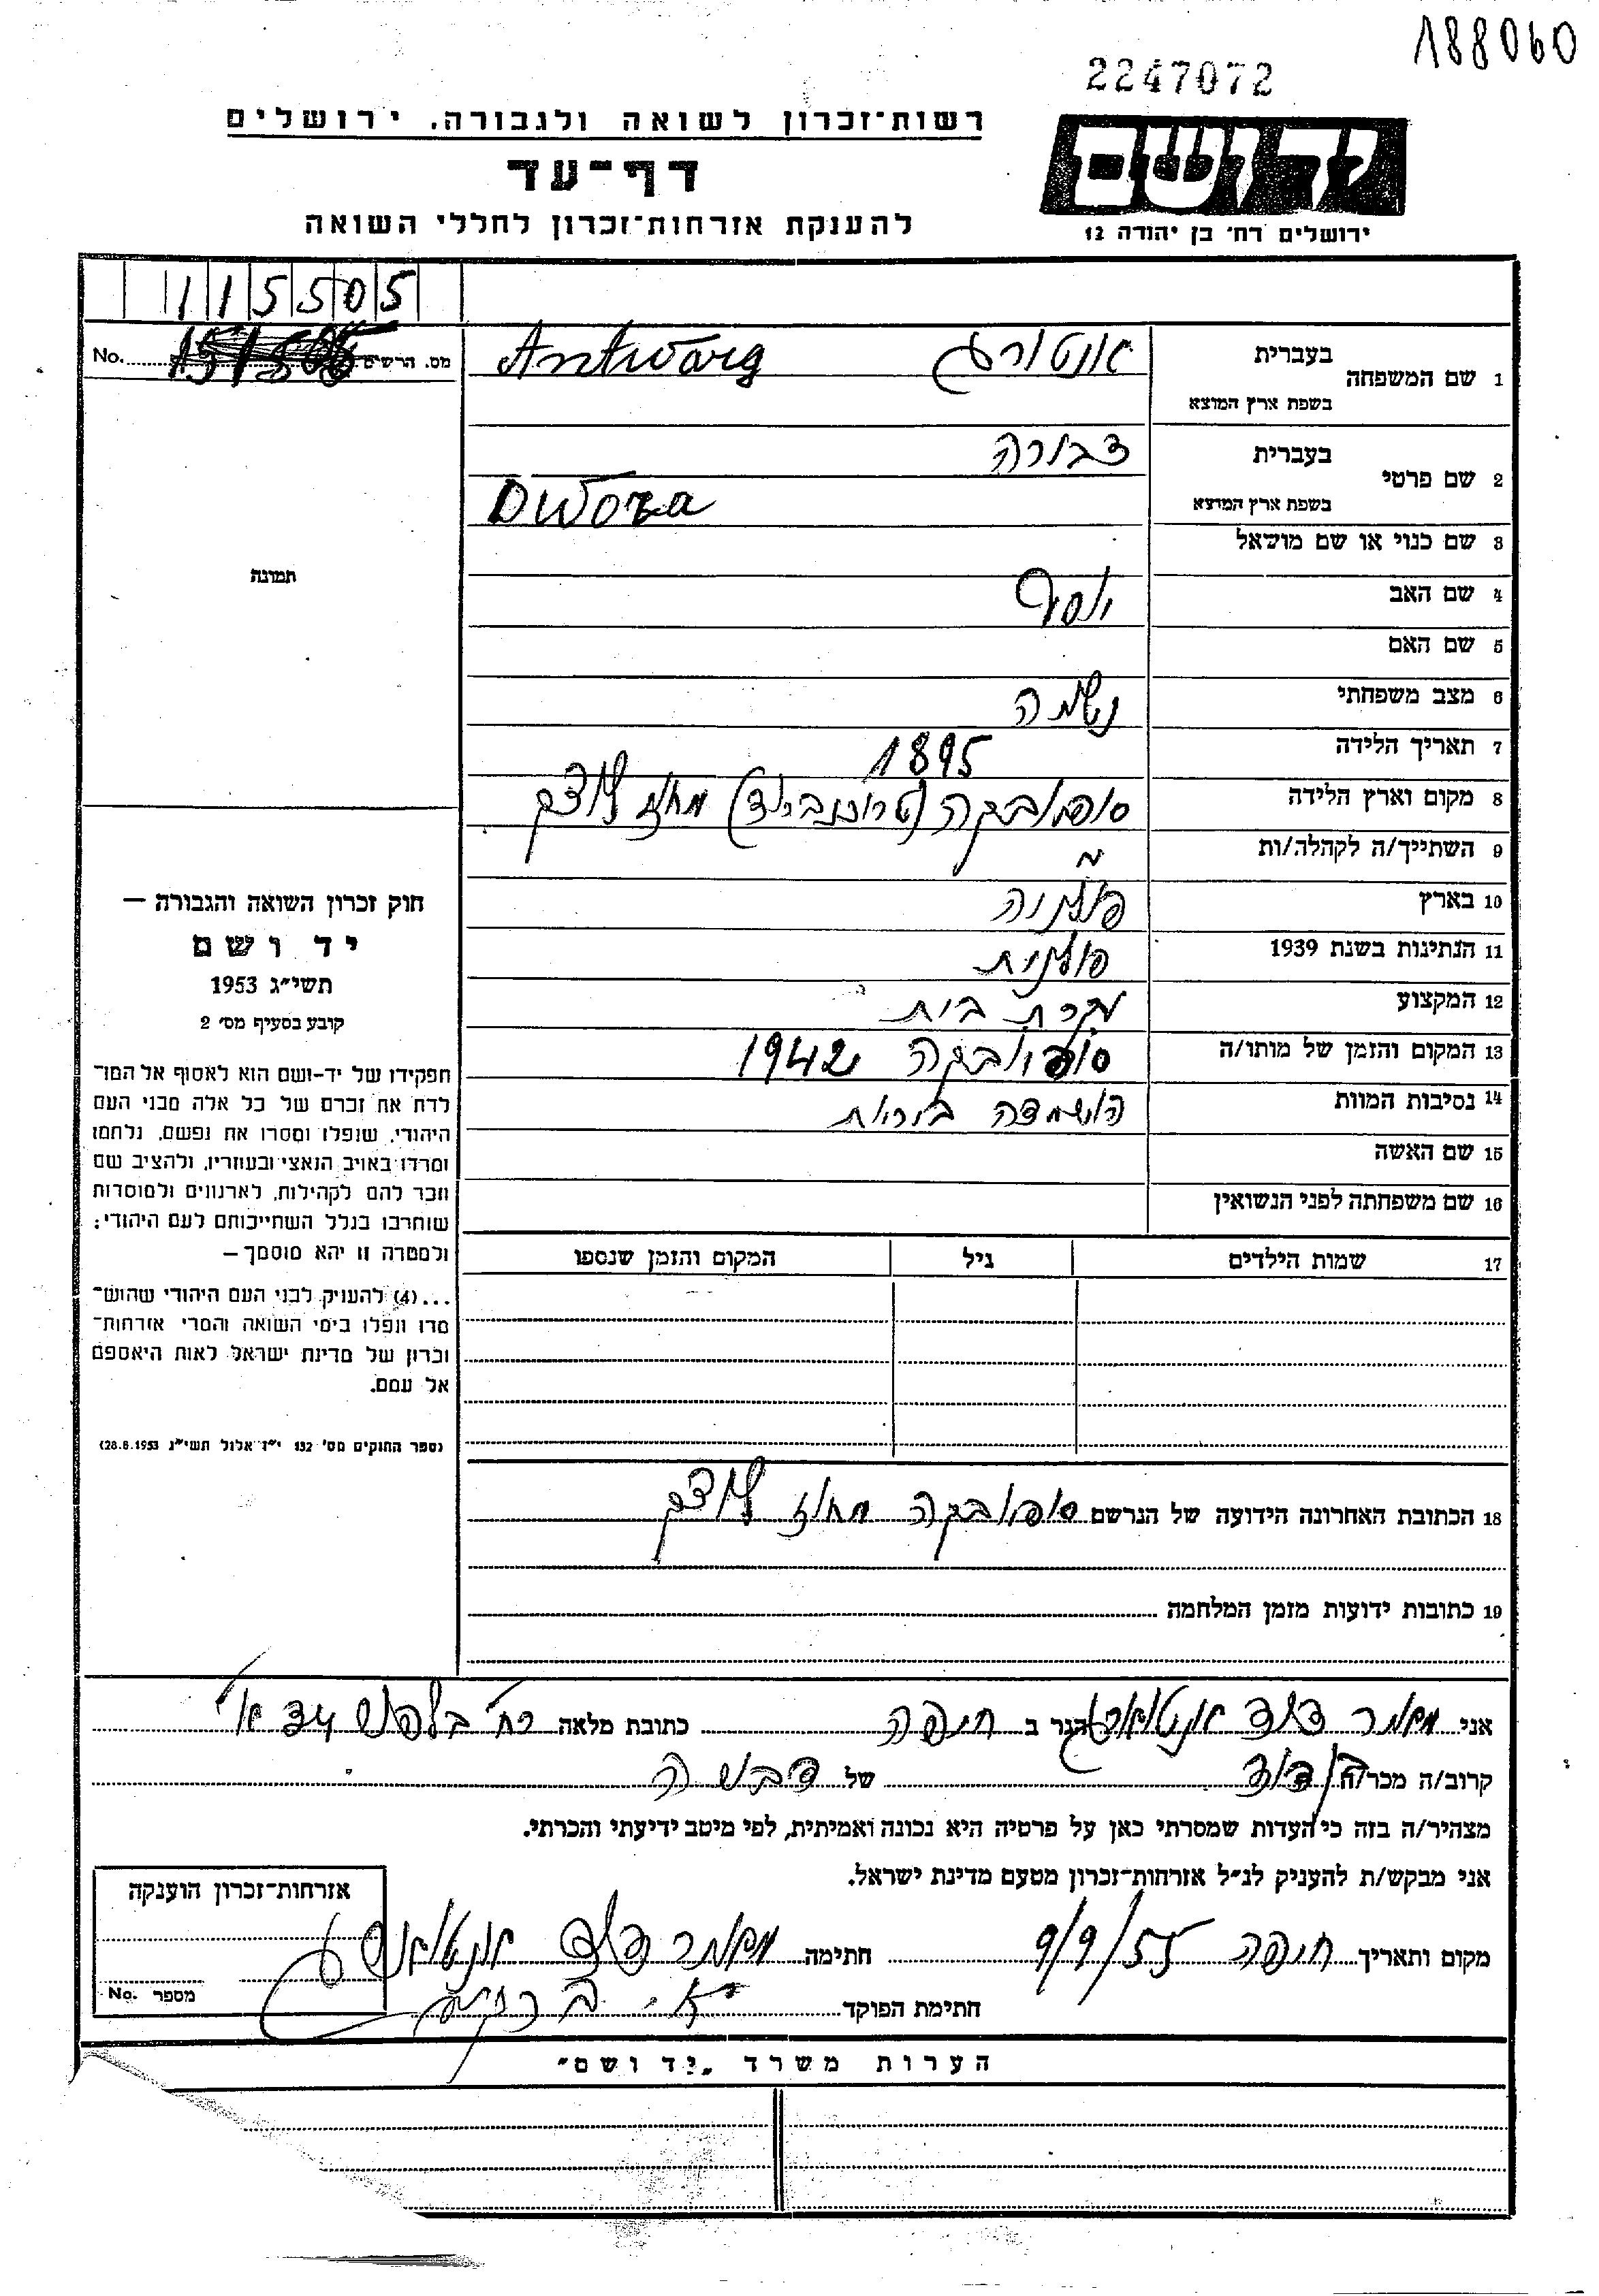 188060
2247072
רשות־זכרון לשואה ולגבורה, ירושלים
דף־עד
להענקת אזרחות־זכרון לחללי השואה
יד ושם
ירושלים רח׳ בן יהודה 12
115505
No. מס. הרשים
1 שם המשפחה בעברית אנטורג Antwarg
בשפת ארץ המוצא
2 שם פרטי בעברית דבורה
בשפת ארץ המוצא Dwora
3 שם כנוי או שם מושאל
תמונה
4 שם האב יוסף
5 שם האם
6 מצב משפחתי נשואה
7 תאריך הלידה 1895
8 מקום וארץ הלידה סופיובקה (טרוכנברוד) מחוז לוצק
9 השתייך/ה לקהלה/ות
10 בארץ פולניה
11 הנתינות בשנת 1939 פולנית
12 המקצוע עקרת בית
13 המקום והזמן של מותו/ה סופיובקה 1942
14 נסיבות המוות
15 שם האשה
16 שם משפחתה לפני הנשואין
17 שמות הילדים גיל המקום והזמן שנספו
חוק זכרון השואה והגבורה –
יד ושם
תשי״ג 1953
קובע בסעיף מס׳ 2
תפקידו של יד–ושם הוא לאסוף אל המו־
לדת את זכרם של כל אלה מבני העם
היהודי, שנפלו ומסרו את נפשם, נלחמו
ומרדו באויב הנאצי ובעוזריו, ולהציב שם
וזכר להם לקהילות, לארגונים ולמוסדות
שוחרבו בגלל השתייכותם לעם היהודי;
ולמטרה זו יהא מוסמך –
...(4) להעניק לבני העם היהודי שהוש־
מדו ונפלו בימי השואה והמרי אזרחות־
זכרון של מדינת ישראל לאות היאספם
אל עמם.
(ספר החוקים מס׳ 132 י״ז אלול תשי״ג 28.8.1953)
18 הכתובת האחרונה הידועה של הנרשם סופיובקה מחוז לוצק
19 כתובות ידועות מזמן המלחמה
אני מאיר דוד אנטוורג הגר ב חיפה כתובת מלאה רח׳ בלפור 34 א׳
קרוב/ה מכר/ה של
מצהיר/ה בזה כי העדות שמסרתי כאן על פרטיה היא נכונה ואמיתית, לפי מיטב ידיעתי והכרתי.
אני מבקש/ת להעניק לנ״ל אזרחות־זכרון מטעם מדינת ישראל.
מקום ותאריך חיפה 9/9/55 חתימה מאיר דוד אנטוורג
חתימת הפוקד
אזרחות־זכרון הוענקה
מספר No.
הערות משרד „יד ושם״